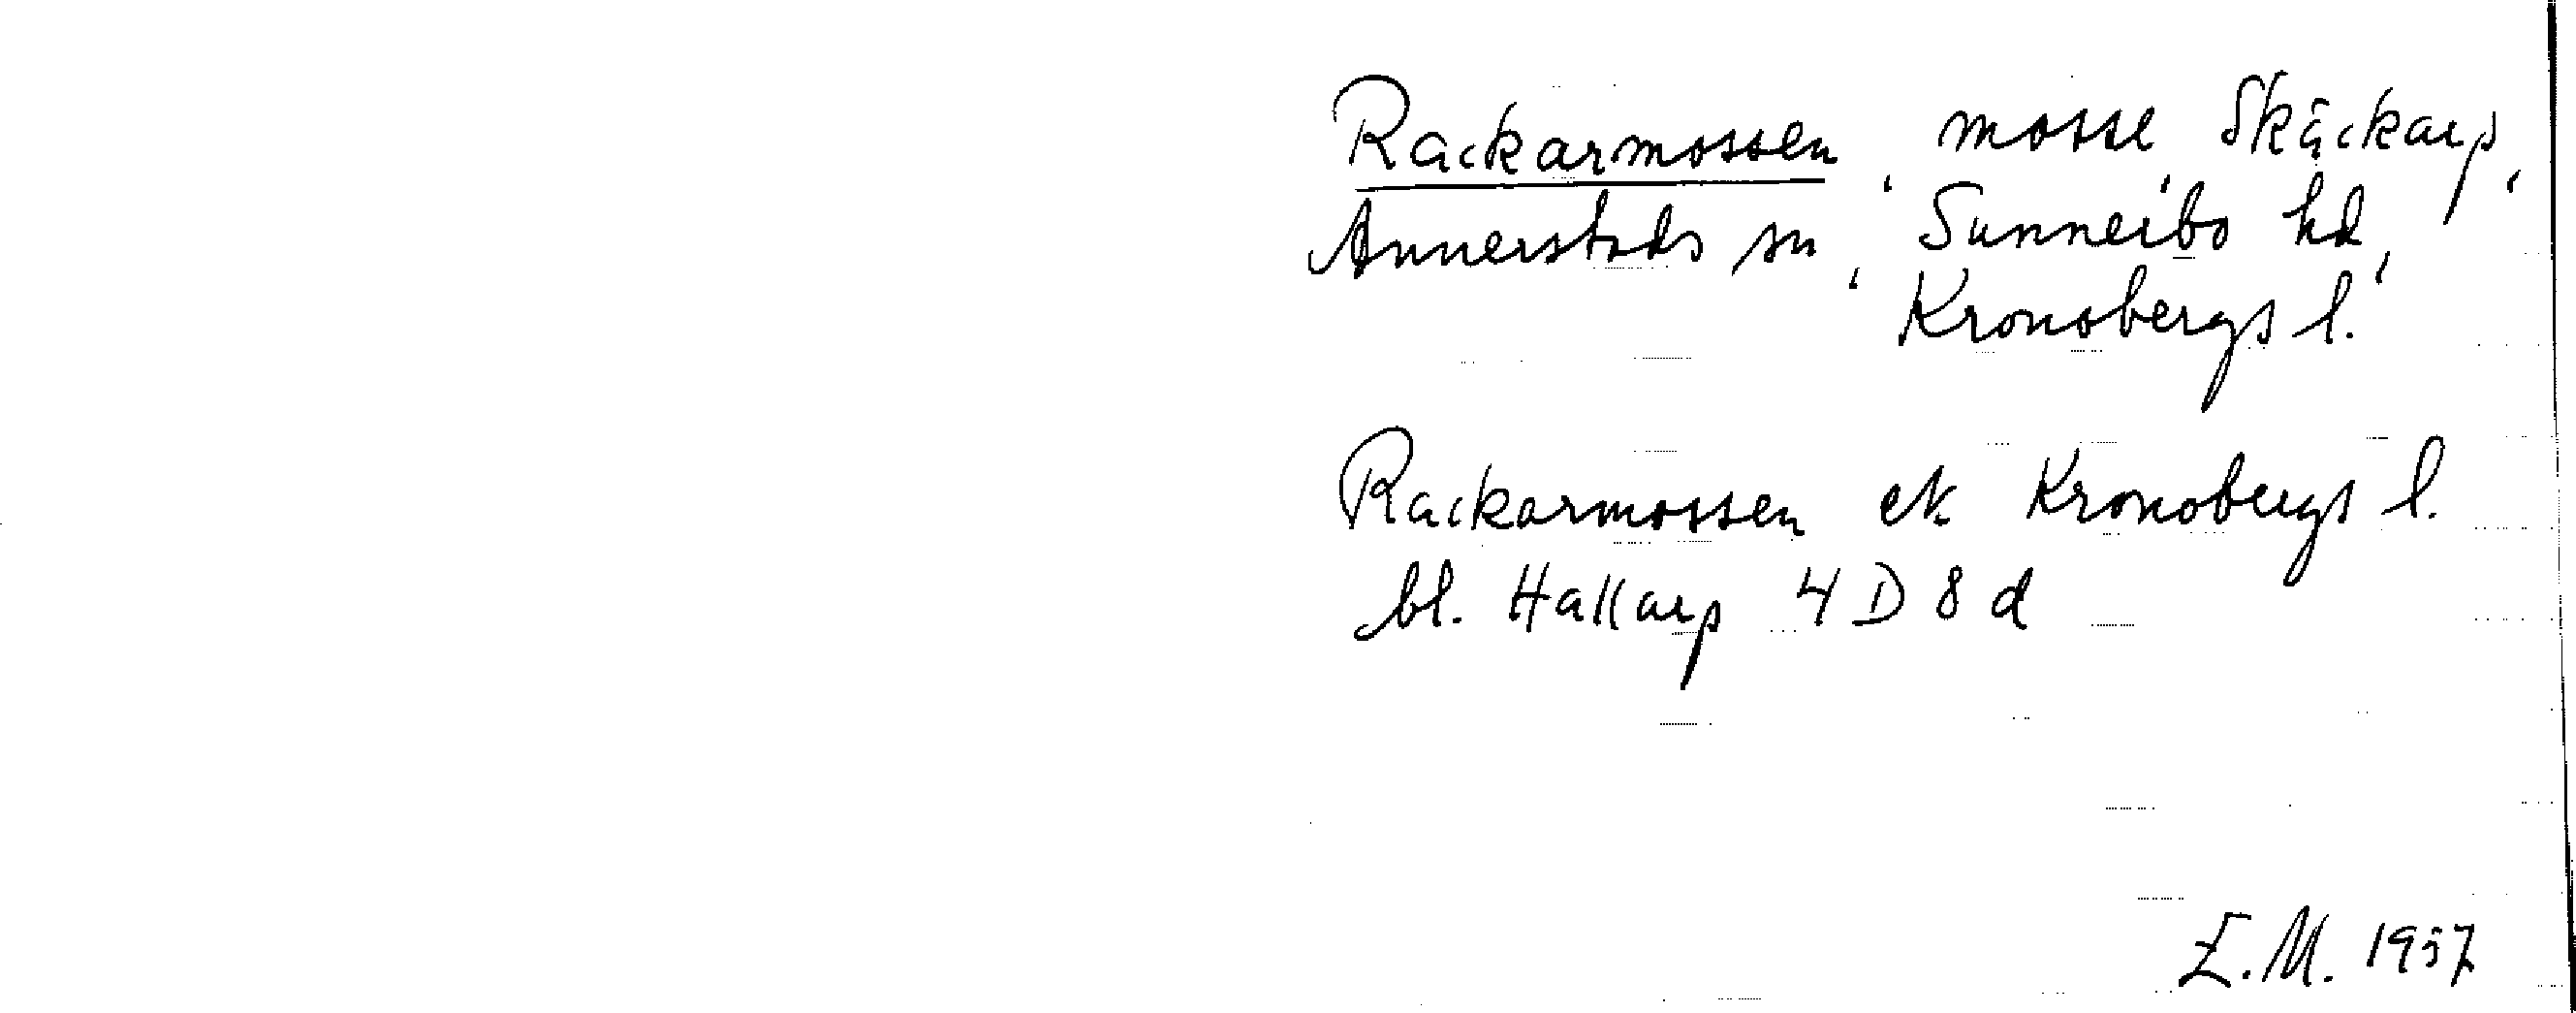 Rackarmossen, mosse, Skäckarp,
Annerstads sn, Sunnerbo hd,
Kronobergs l.
Rackarmossen ek Kronobergs l.
bl. Hallarp 4 D 8 d
E.M. 1957